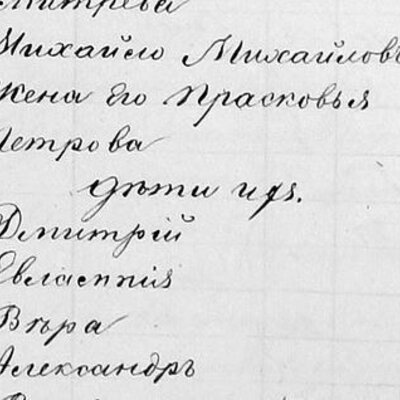 Михайло Михайловъ
Жена его Прасковья
Петрова
дѣти ихъ.
Дмитрій
Евлампія
Вѣра
Александръ